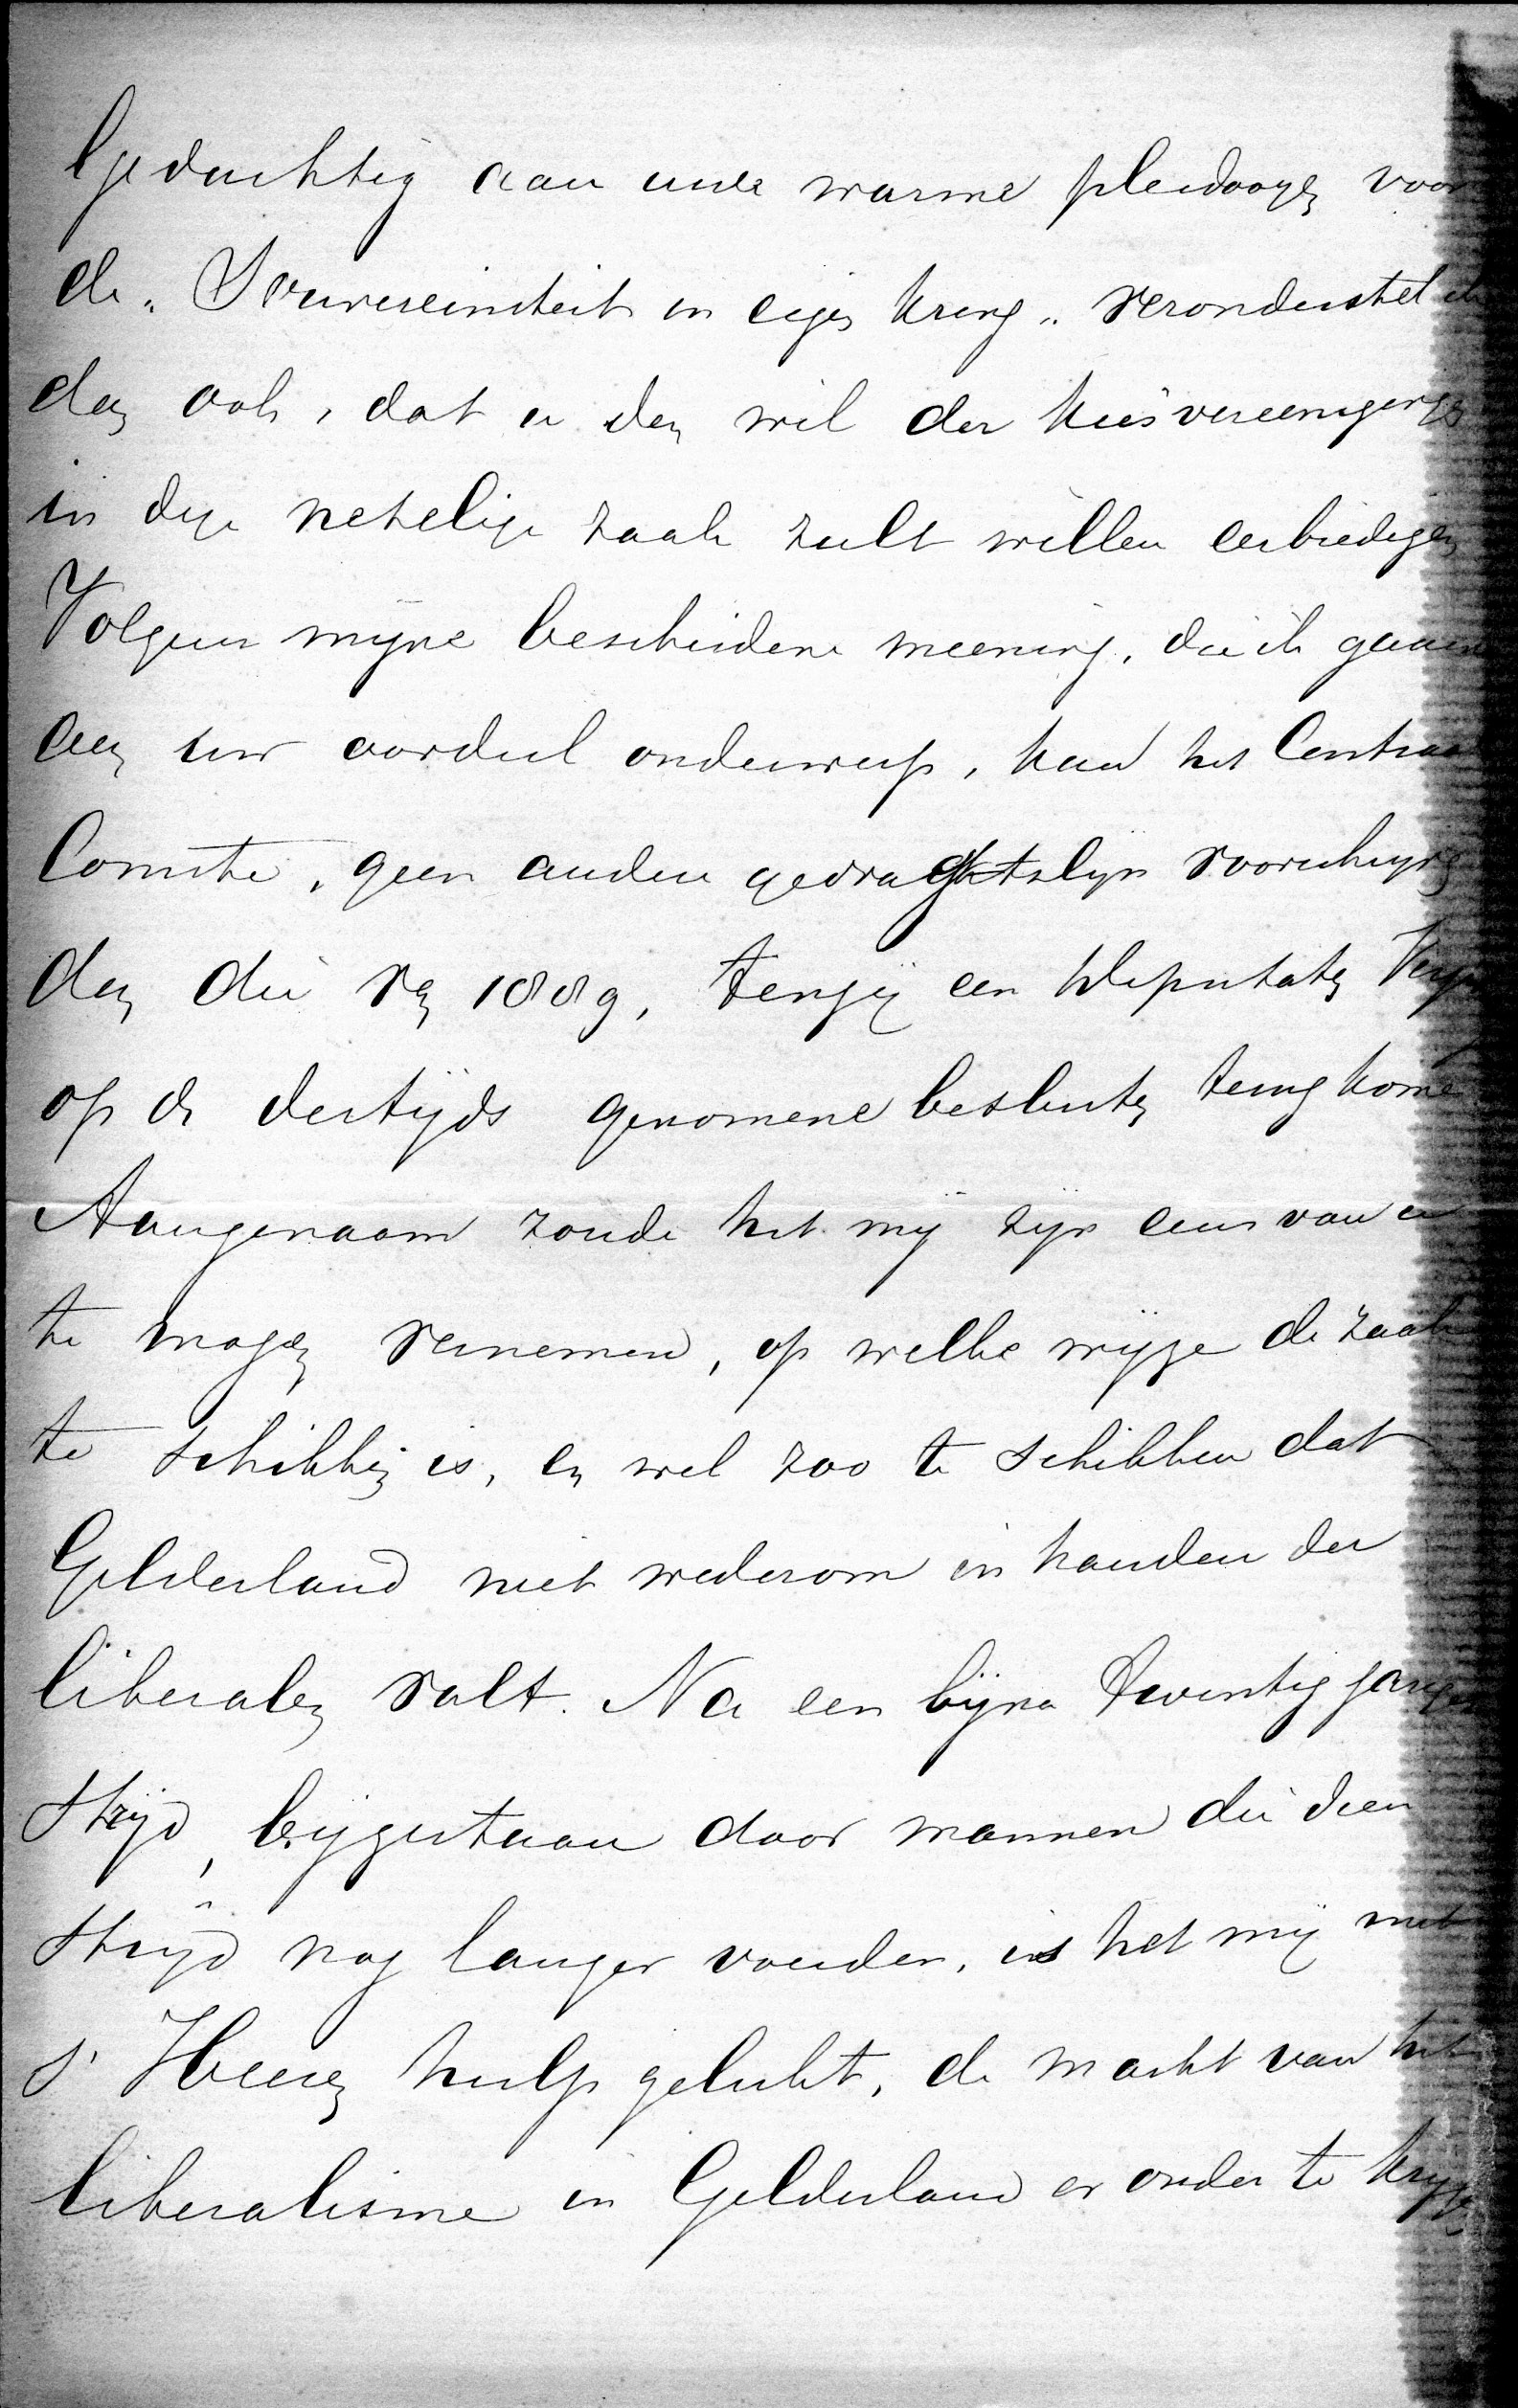 Gedachtig aan uwe warme pleidooyen voor
de "Souvereiniteit in eigen kring" veronderstel ik
dan ook, dat u den wil der kiesvereenigingen
in deze netelige zaak zult willen eerbiedigen
Volgens mijne bescheidene meening, die ik gaarne
aan uw oordeel onderwerp, kan het Centraal
Comite, geen andere gedragslijn voorschrijven
dan die van 1889, tenzij een Deputaten Verg
op de destijds genomene besluiten terug kome
Aangenaam zoude het mij zijn eens van u
te mogen vernemen, op welke wijze de zaak
te schikken is, en wel zoo te schikken dat
Gelderland niet wederom in handen der
liberalen valt. Na een bijna twintig jarigen
strijd, bijgestaan door mannen die dien
strijd nog langer voerden, is het mij met
s' Heeren hulp gelukt, de macht van het
liberalisme in Gelderland er onder te krijgen